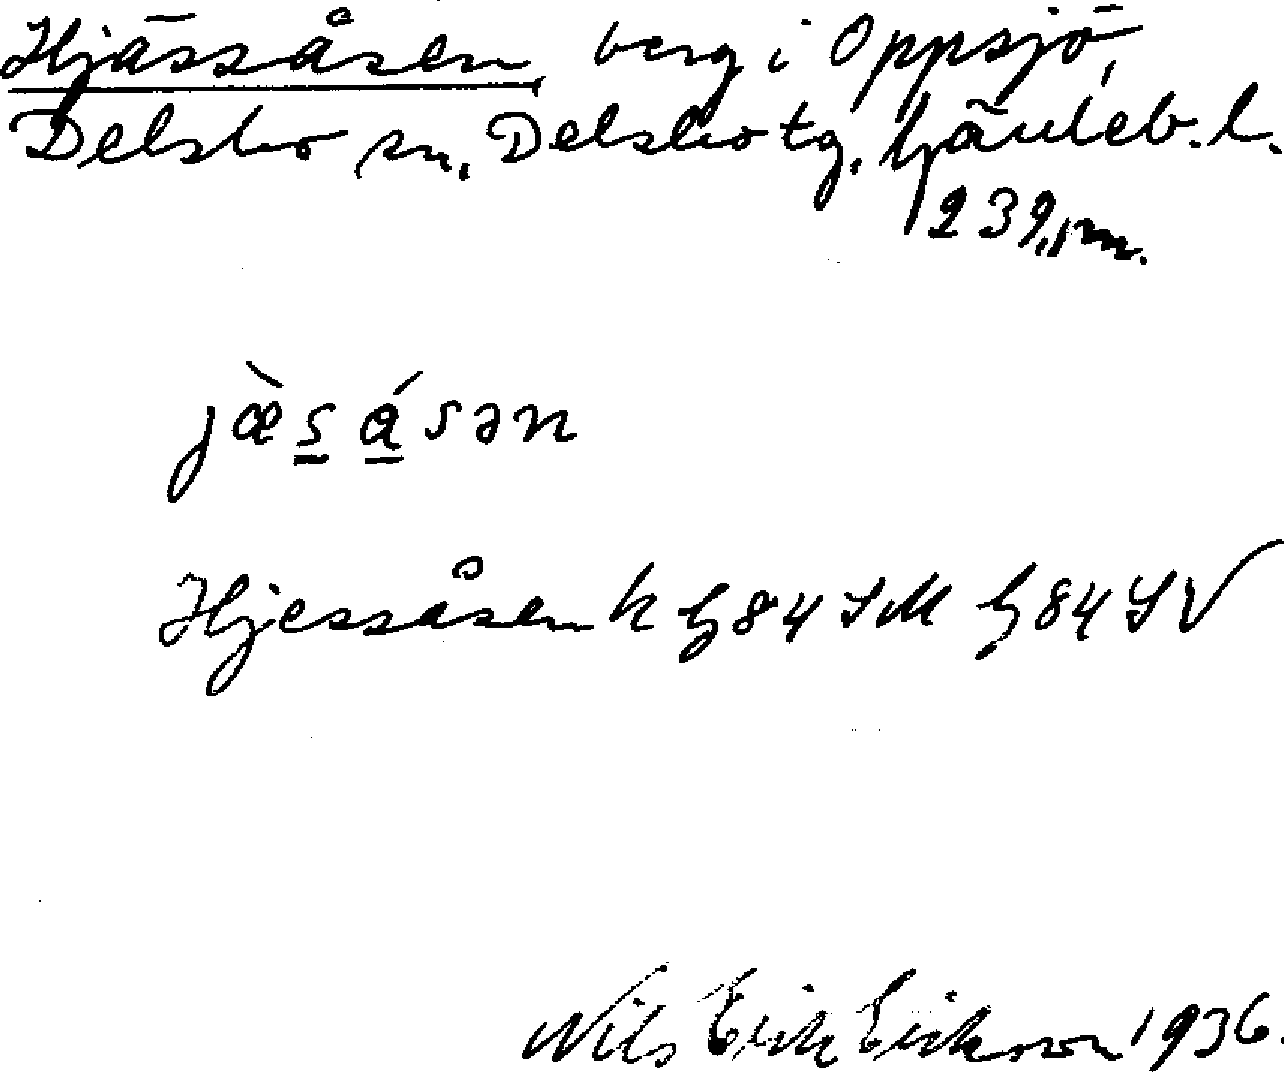 Hjässåsen, berg i Oppsjö,
Delsbo sn, Delsbo tg, Gävleb. l.
239,1 m.
jæ̀s̲ á̲sən
Hjessåsen k G 84 SM G 84 SV
Nils Erik Erikson 1936.